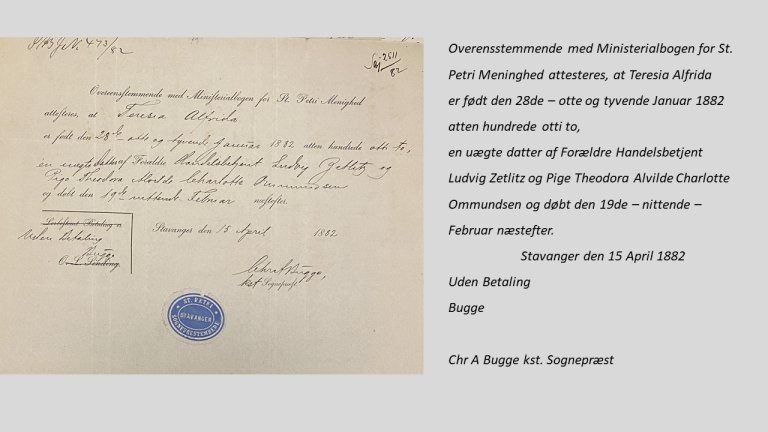 473/82
2511/82
Overensstemmende med Ministerialbogen for St. Petri Menighed
attesteres, at Teresia Alfrida
er født den 28de otte og tyvende Januar 1882 atten hundrede otti to,
en uægte datter af Forældre Handelsbetjent Ludvig Zetlitz og
Pige Theodora Charlotte Ommundsen
og døbt den 19de nittende Februar næstefter.
Stavanger den 15 April 1882
Uden Betaling
Bugge
Chr A Bugge
kst. Sognepræst
ST. PETRI
STAVANGER
SOGNEPRESTEMBEDE
Overensstemmende med Ministerialbogen for St.
Petri Meninghed attesteres, at Teresia Alfrida
er født den 28de – otte og tyvende Januar 1882
atten hundrede otti to,
en uægte datter af Forældre Handelsbetjent
Ludvig Zetlitz og Pige Theodora Alvilde Charlotte
Ommundsen og døbt den 19de – nittende –
Februar næstefter.
Stavanger den 15 April 1882
Uden Betaling
Bugge
Chr A Bugge kst. Sognepræst